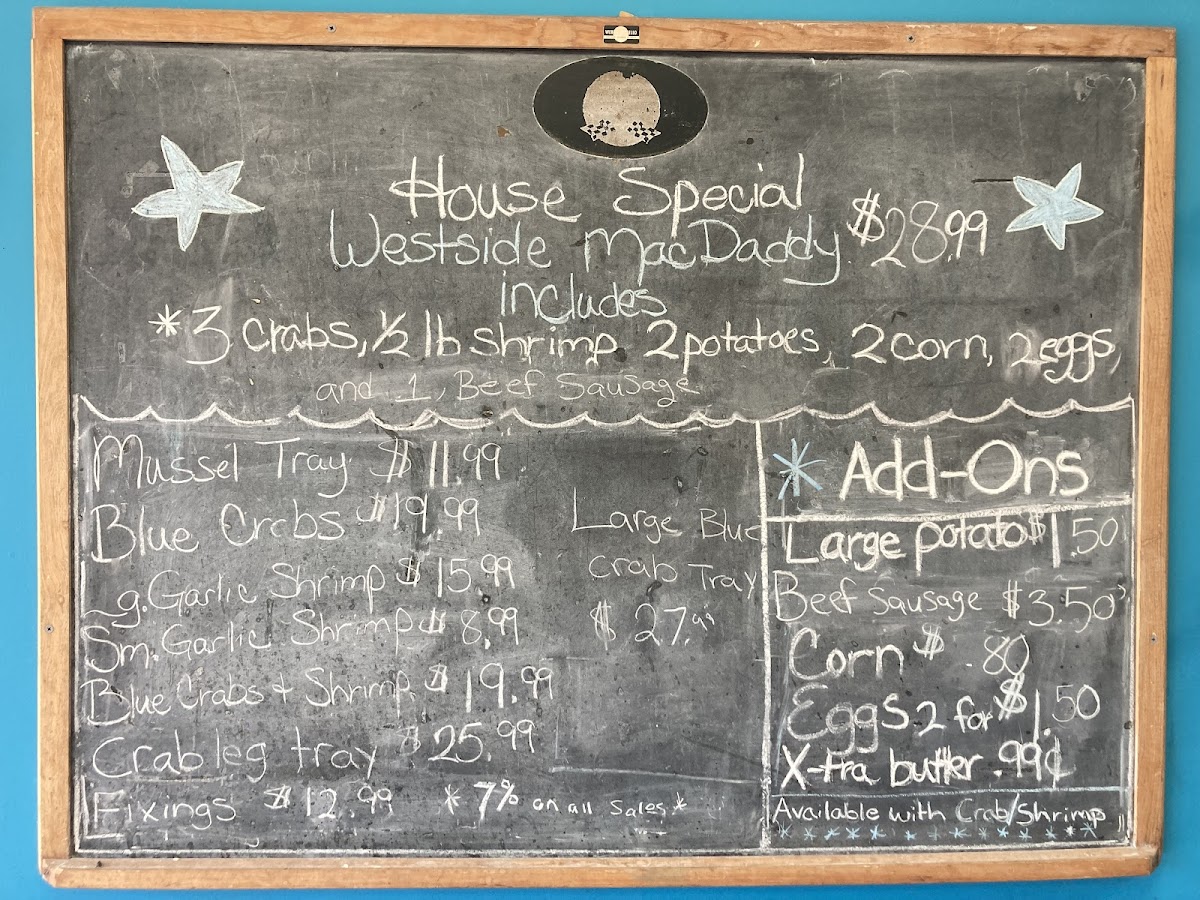 House Special
Westside MacDaddy $28.99
includes
*3 crabs, 1/2 lb shrimp 2 potatoes, 2 corn, 2 eggs,
and 1, Beef Sausage
Mussel Tray $11.99
Blue Crabs $19.99
Lg. Garlic Shrimp $15.99
Sm. Garlic Shrimp $8.99
Blue Crabs & Shrimp $19.99
Crab leg tray $25.99
Fixings $12.99 *7% on all sales*
Large Blue
crab Tray
$27.99
* Add-Ons
Large potato $1.50
Beef Sausage $3.50
Corn $.80
Eggs 2 for $1.50
X-tra butter .99¢
Available with Crab/Shrimp